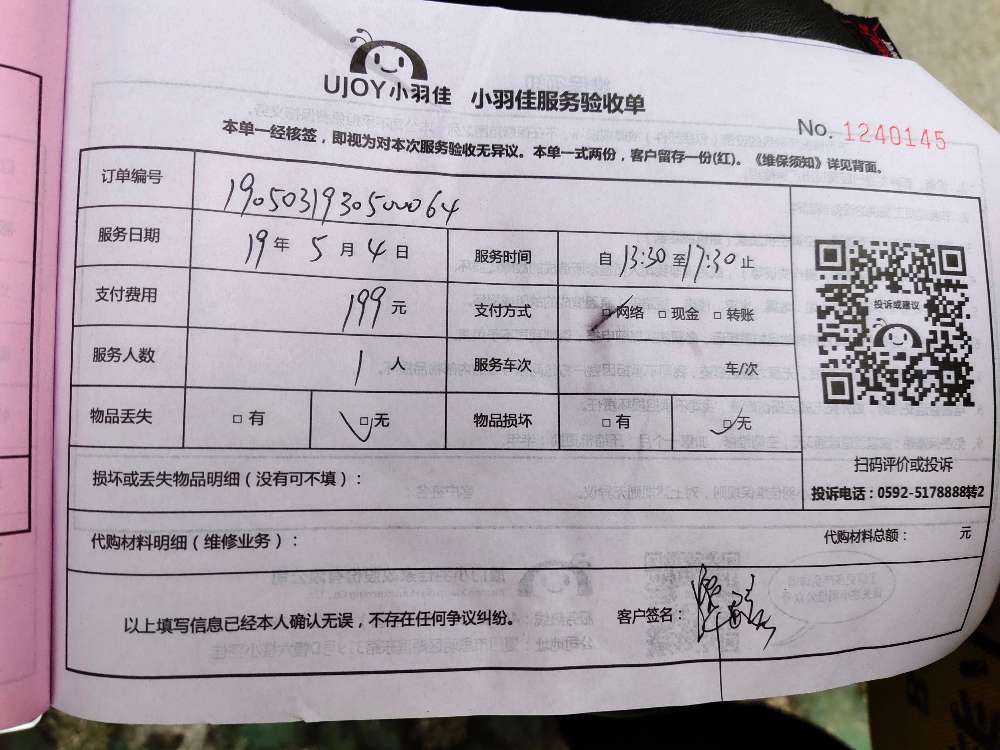 UJOY小羽佳 小羽佳服务验收单
No. 1240145
本单一经核签，即视为对本次服务验收无异议。本单一式两份，客户留存一份(红)。《维保须知》详见背面。
订单编号 190503193050064
服务日期 19年5月4日 服务时间 自13:30至17:30止
支付费用 199元 支付方式 □网络 □现金 □转账
投诉或建议
服务人数 1人 服务车次 车/次
物品丢失 □有 □无 物品损坏 □有 □无
扫码评价或投诉
损坏或丢失物品明细（没有可不填）：
投诉电话：0592-5178888转2
代购材料明细（维修业务）： 代购材料总额： 元
以上填写信息已经本人确认无误，不存在任何争议纠纷。 客户签名：